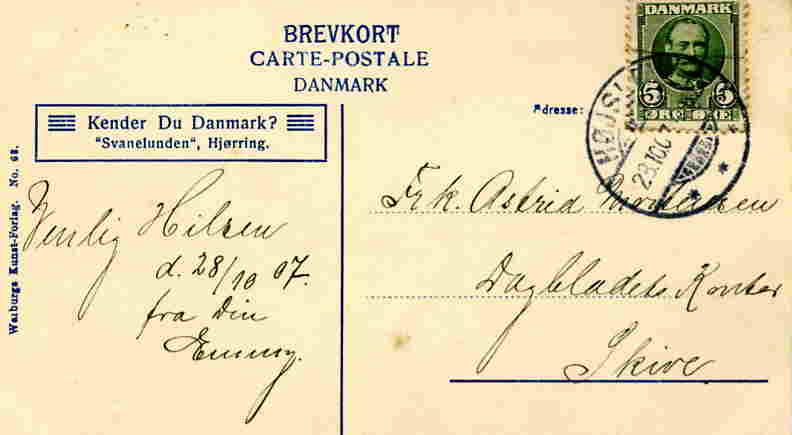 BREVKORT
CARTE-POSTALE
DANMARK
Kender Du Danmark?
"Svanelunden", Hjørring.
Warburgs Kunst-Forlag. No. 68.
Venlig Hilsen
d. 28/10 07.
fra Din
Emmy.
DANMARK
5 5
ØRE ØRE
28.10.0
Adresse:
Frk. Astrid
Dagbladets Kontor
Skive